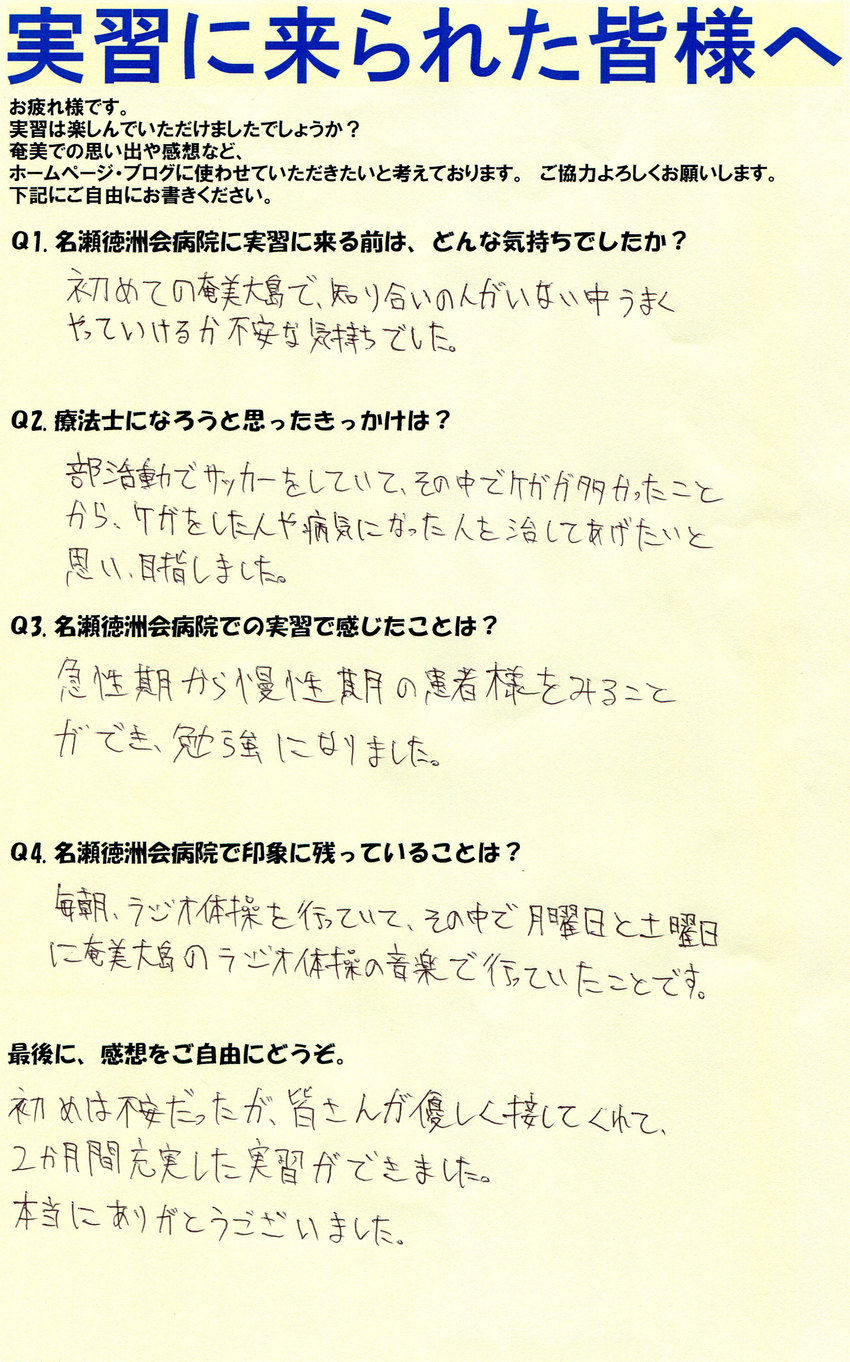 実習に来られた皆様へ
お疲れ様です。
実習は楽しんでいただけましたでしょうか？
奄美での思い出や感想など、
ホームページ・ブログに使わせていただきたいと考えております。　ご協力よろしくお願いします。
下記にご自由にお書きください。
Q1. 名瀬徳洲会病院に実習に来る前は、どんな気持ちでしたか？
初めての奄美大島で、知り合いの人がいない中うまく
やっていけるか不安な気持ちでした。
Q2. 療法士になろうと思ったきっかけは？
部活動でサッカーをしていて、その中でケガが多かったこと
から、ケガをした人や病気になった人を治してあげたいと
思い、目指しました。
Q3. 名瀬徳洲会病院での実習で感じたことは？
急性期から慢性期の患者様をみること
ができ、勉強になりました。
Q4. 名瀬徳洲会病院で印象に残っていることは？
毎朝、ラジオ体操を行っていて、その中で月曜日と土曜日
に奄美大島のラジオ体操の音楽で行っていたことです。
最後に、感想をご自由にどうぞ。
初めは不安だったが、皆さんが優しく接してくれて、
2か月間充実した実習ができました。
本当にありがとうございました。